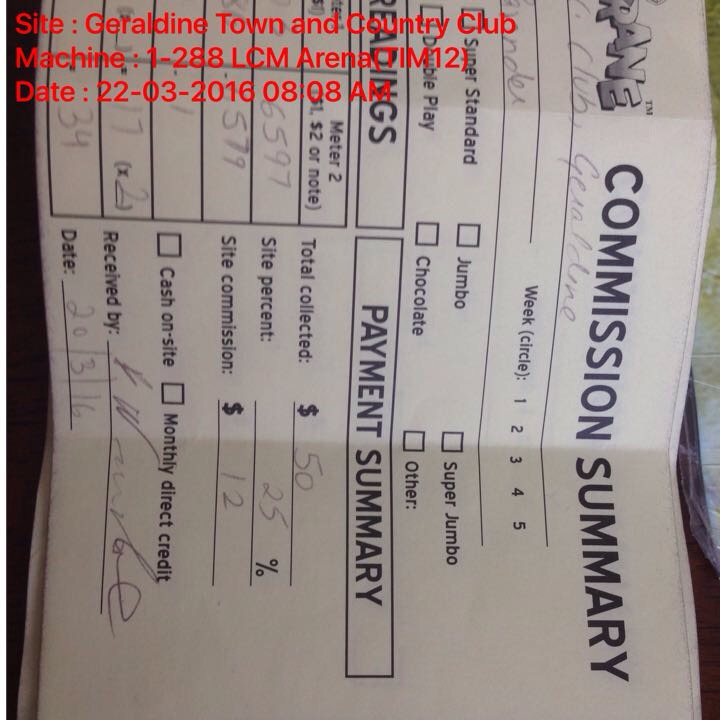 Site : Geraldine Town and Country Club
Machine : 1-288 LCM Arena(TIM12)
Date : 22-03-2016 08:08 AM
RANE™ COMMISSION SUMMARY
Club, Geraldine
Week (circle): 1 2 3 4 5
Super Standard Jumbo Super Jumbo
Double Play Chocolate Other:
READINGS
PAYMENT SUMMARY
Meter 2
$1, $2 or note)
Total collected: $ 50
6597
Site percent: 25 %
579
Site commission: $ 12
Cash on-site Monthly direct credit
17 (x2)
Received by:
34
Date: 20/3/16